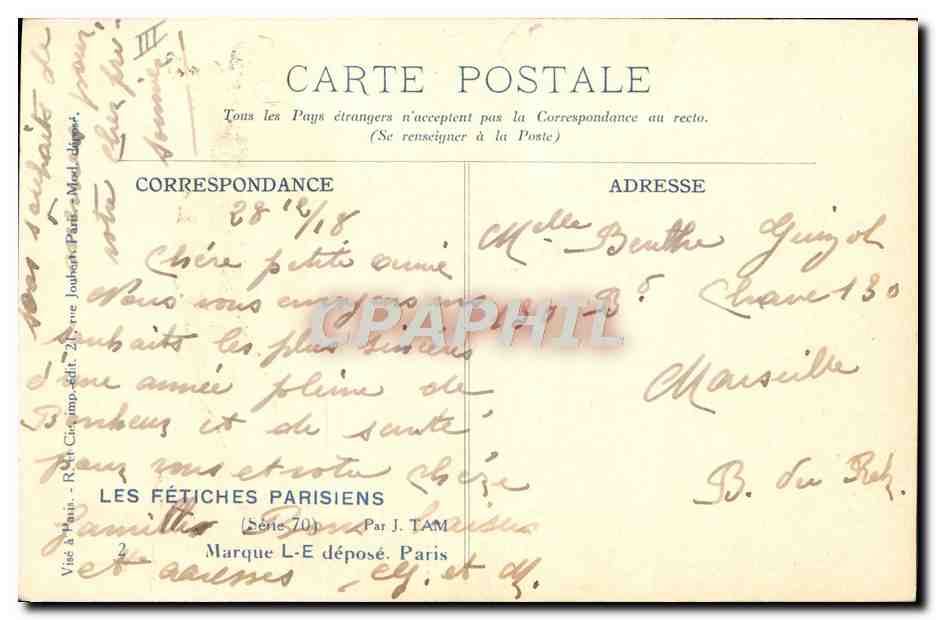 CARTE POSTALE
Tous les Pays étrangers n'acceptent pas la Correspondance au recto.
(Se renseigner à la Poste)
CORRESPONDANCE
28 12/18
Chére petite amie
Nous vous envoyons nos
souhaits les plus sincères
d'une année pleine de
Bonheur et de santé
pour vous et votre chére
famille Bons baisers
et caresses M. et M.
nos souhaits de
pour
votre cher pri-
sonnier
III
LES FÉTICHES PARISIENS
(Série 70) Par J. TAM
2 Marque L-E déposé. Paris
Visé à Paris. - R. et Cie, imp.-édit. 21, rue Joubert, Paris - Mod. déposé.
ADRESSE
Melle Berthe
Bd Chave 130
Marseille
B. du Rh.
CPAPHIL